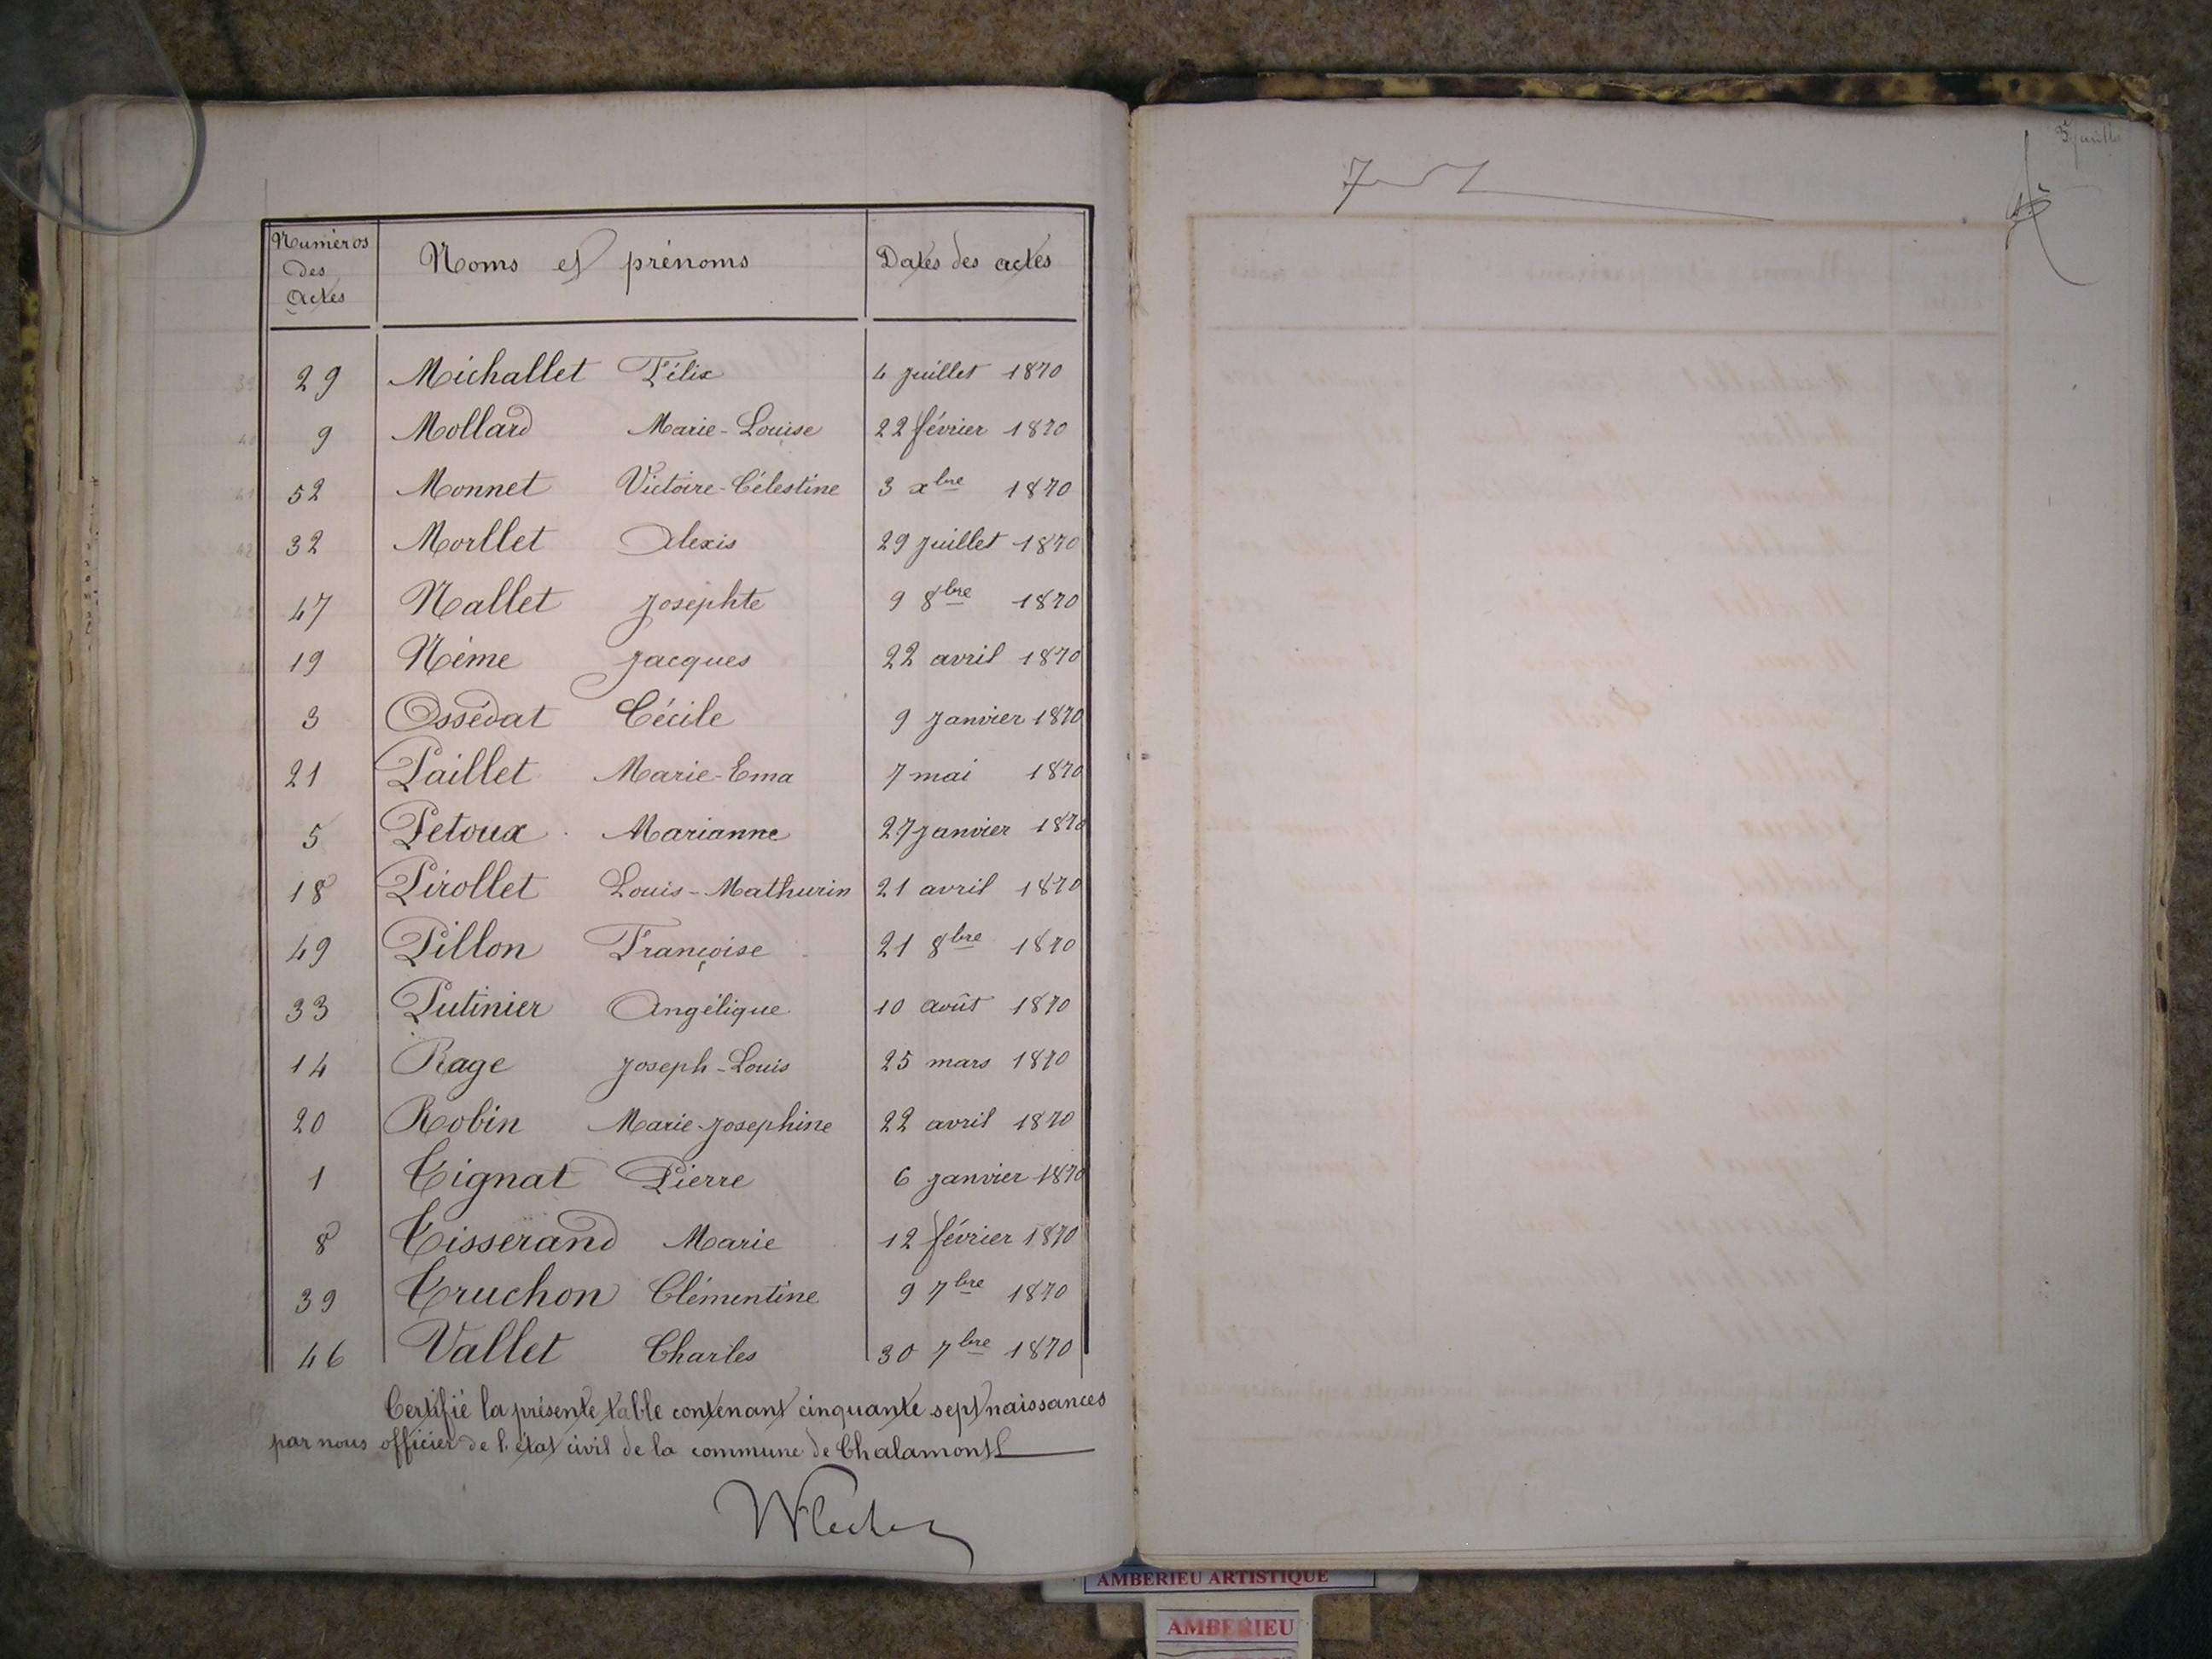 Numéros des actes Noms et prénoms Dates des actes
29 Michallet Félix 4 juillet 1870
9 Mollard Marie-Louise 22 février 1870
52 Monnet Victoire-Célestine 3 xbre 1870
32 Morllet Alexis 29 juillet 1870
47 Nallet Josephte 9 8bre 1870
19 Nême Jacques 22 avril 1870
3 Ossédat Cécile 9 Janvier 1870
21 Paillet Marie-Ema 7 mai 1870
5 Petoux Marianne 27 janvier 1870
18 Pirollet Louis-Mathurin 21 avril 1870
49 Pillon Françoise 21 8bre 1870
33 Putinier Angélique 10 août 1870
14 Rage Joseph-Louis 25 mars 1870
20 Robin Marie-Josephine 22 avril 1870
1 Tignat Pierre 6 janvier 1870
8 Tisserand Marie 12 février 1870
39 Truchon Clémentine 9 7bre 1870
46 Vallet Charles 30 7bre 1870
Certifié la présente table contenant cinquante sept naissances
par nous officier de l'état civil de la commune de Chalamont
AMBERIEU ARTISTIQUE
AMBERIEU